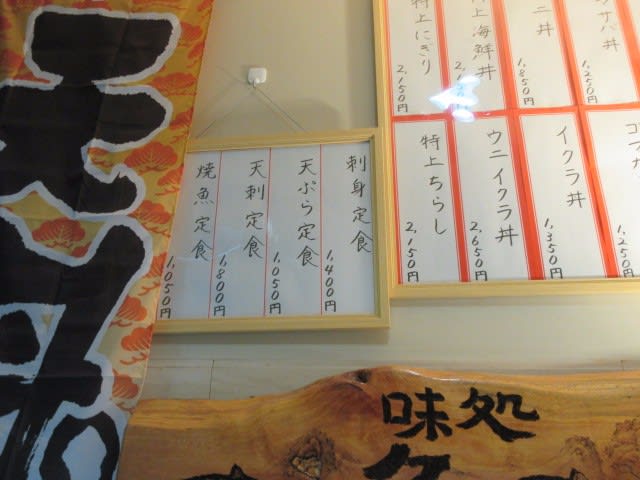 特上にぎり
2,150円
上海鮮丼
ニ丼
1,850円
サバ丼
1,250円
特上ちらし
2,150円
ウニイクラ丼
2,650円
イクラ丼
1,350円
1,250円
刺身定食
1,400円
天ぷら定食
1,050円
天刺定食
1,800円
焼魚定食
1,050円
味処